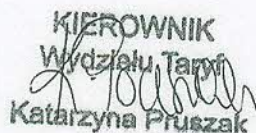 KIEROWNIK
Wydziału Taryf
Katarzyna Pruszak